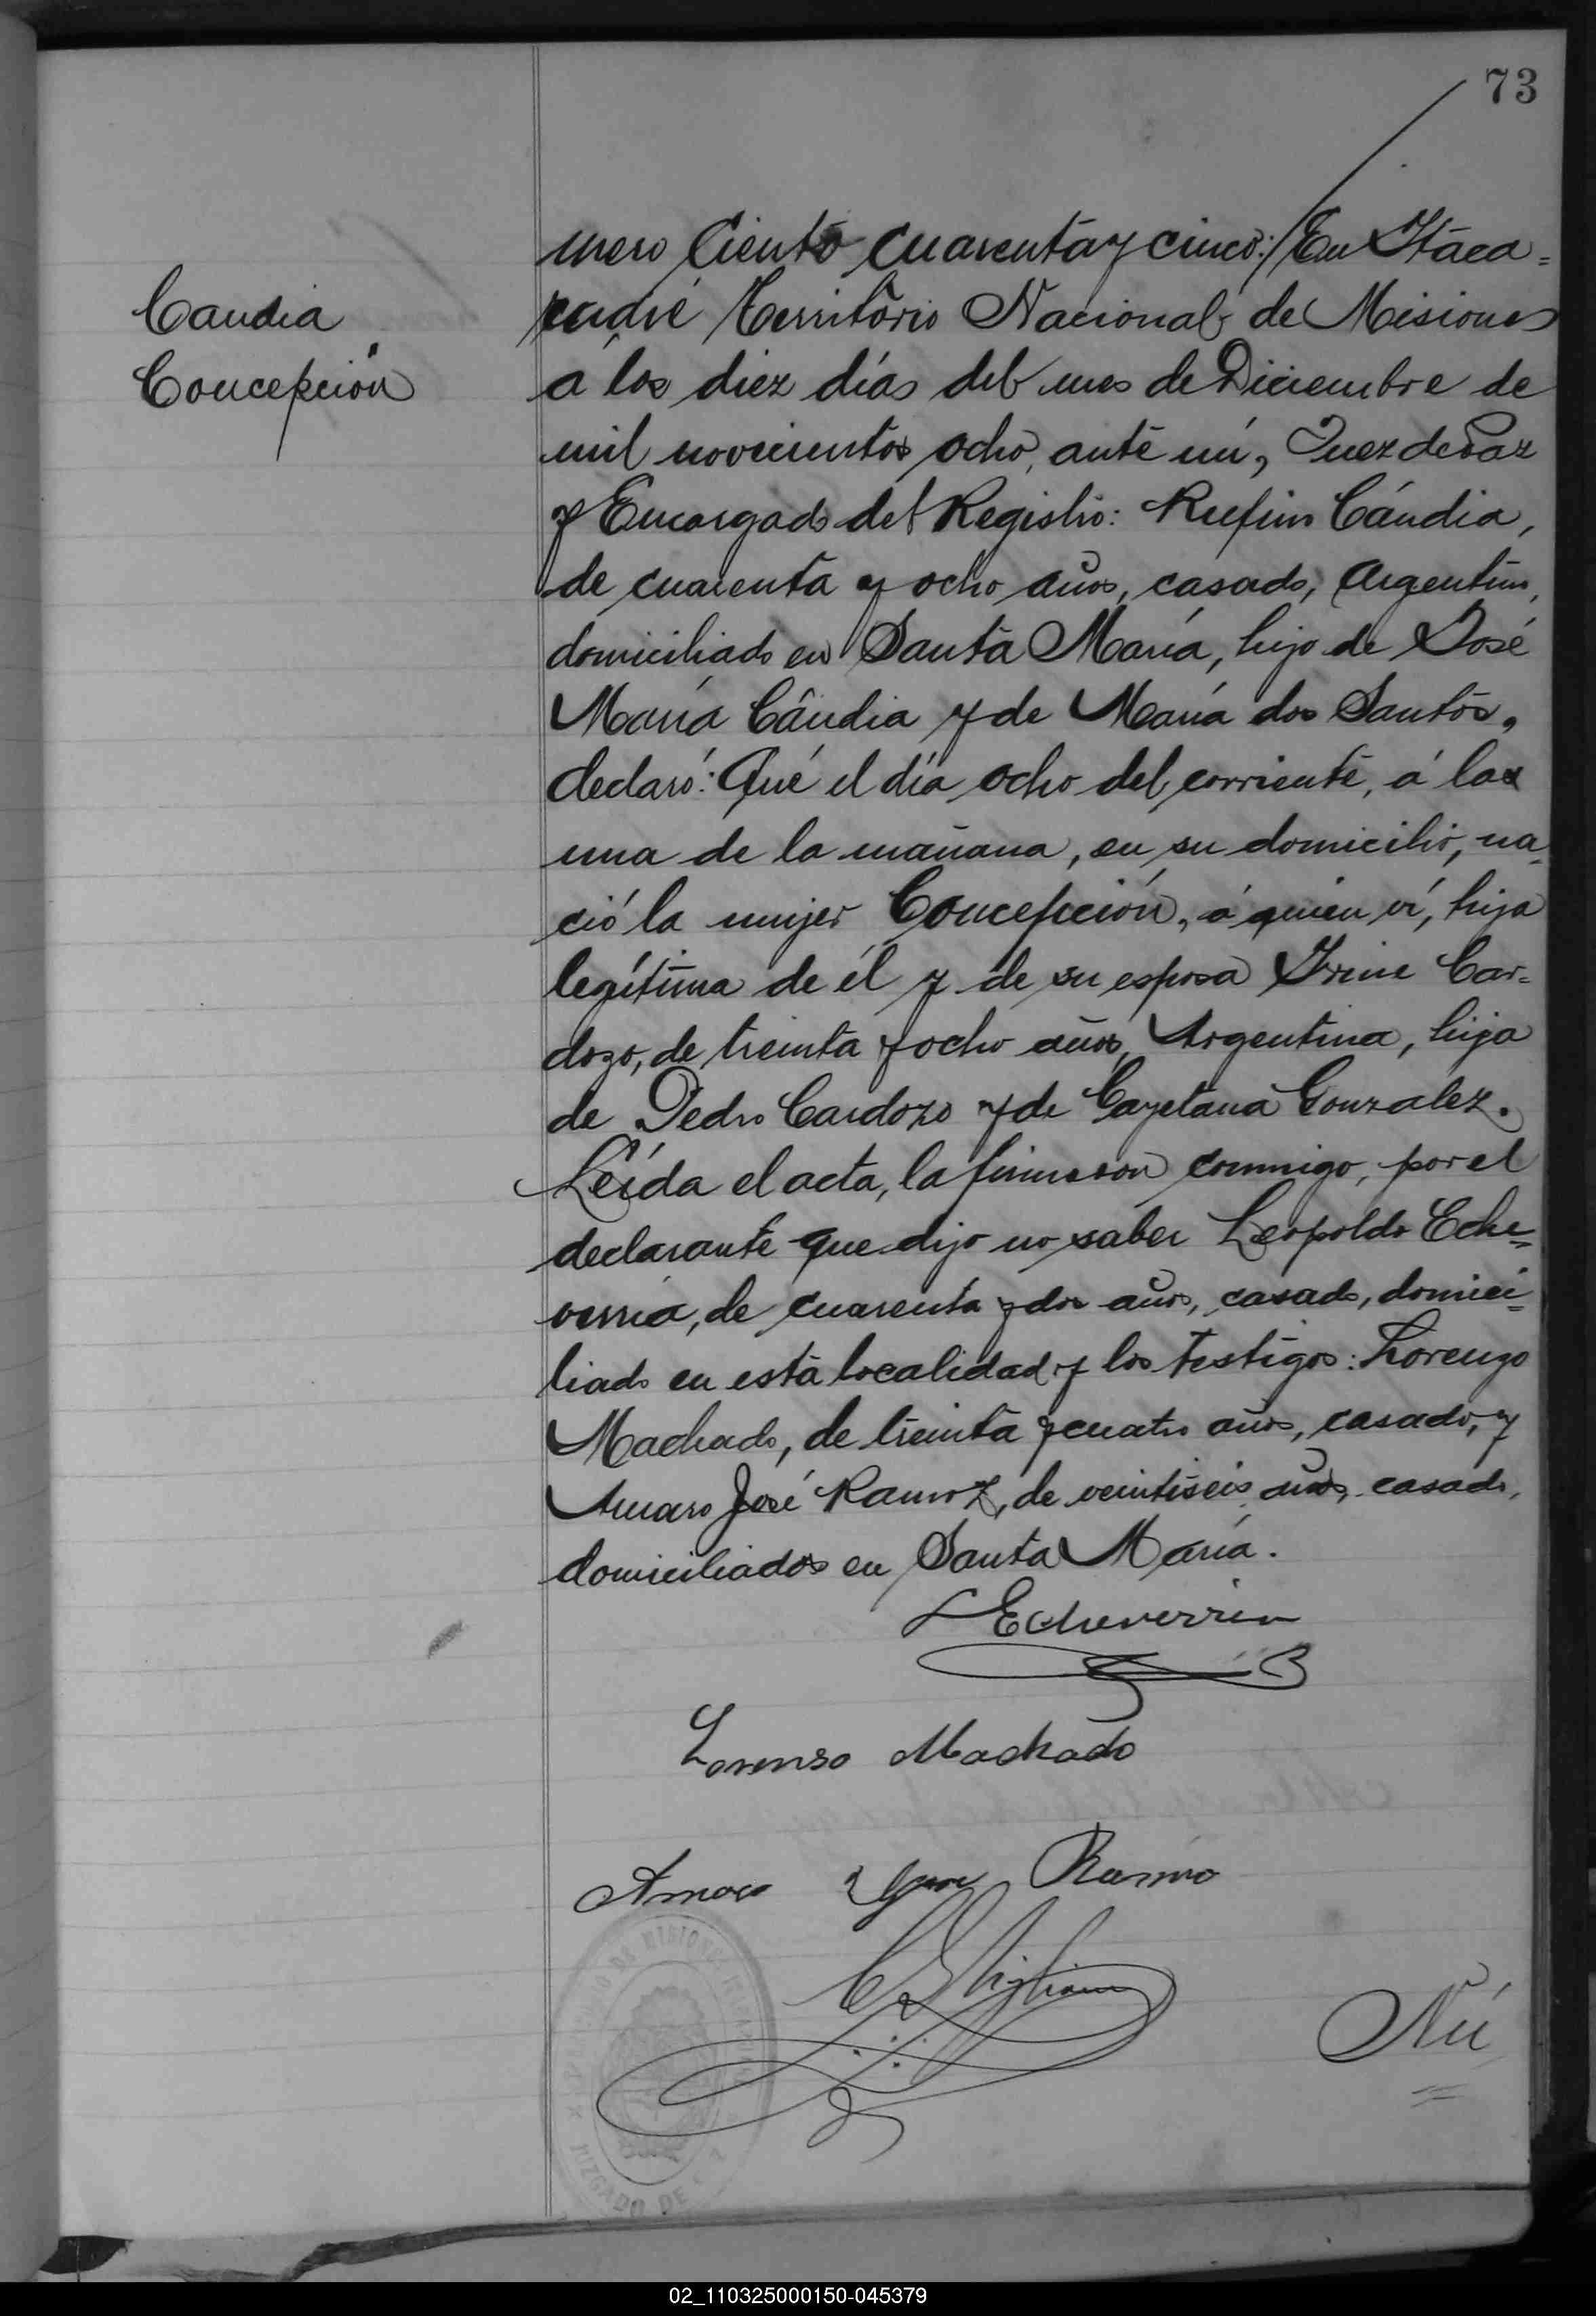 73
Candia
Concepción
mero Ciento cuarenta y cinco: / En Itaca=
ruaré Territorio Nacional de Misiones
a los diez días del mes de Diciembre de
mil novecientos ocho, ante mí, Juez de Paz
y Encargado del Registro: Rufino Cándia,
de cuarenta y ocho años, casado, Argentino,
domiciliado en Santa María, hijo de José
María Cândia y de María dos Santos,
declaró: Qué el día ocho del corriente, á las
una de la mañana, en su domicilio, na
ció la mujer Concepción, á quien ví, hija
legítima de él y de su esposa Irine Car=
dozo, de treinta y ocho años, Argentina, hija
de Pedro Cardozo y de Cayetana Gonzalez.
Leída el acta, la firmaron conmigo, por el
declarante que dijo no saber Leopoldo Eche=
verria, de cuarenta y dos años, casado, domici=
liado en esta localidad y los testigos: Lorenzo
Machado, de treinta y cuatro años, casado, y
Amaro José Ramoz, de veintiseis años, casado,
domiciliados en Santa María.
L Echeverria
Lorenso Machado
Amaro Ramo
Nú
JUZGADO DE
02_110325000150-045379